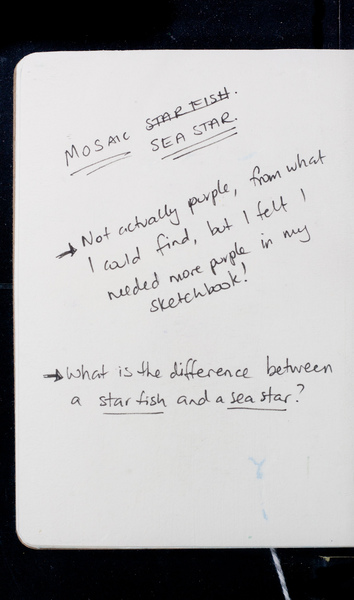 MOSAIC STAR FISH.
SEA STAR.
→ Not actually purple, from what
I could find, but I felt I
needed more purple in my
sketchbook!
→ What is the difference between
a star fish and a sea star?